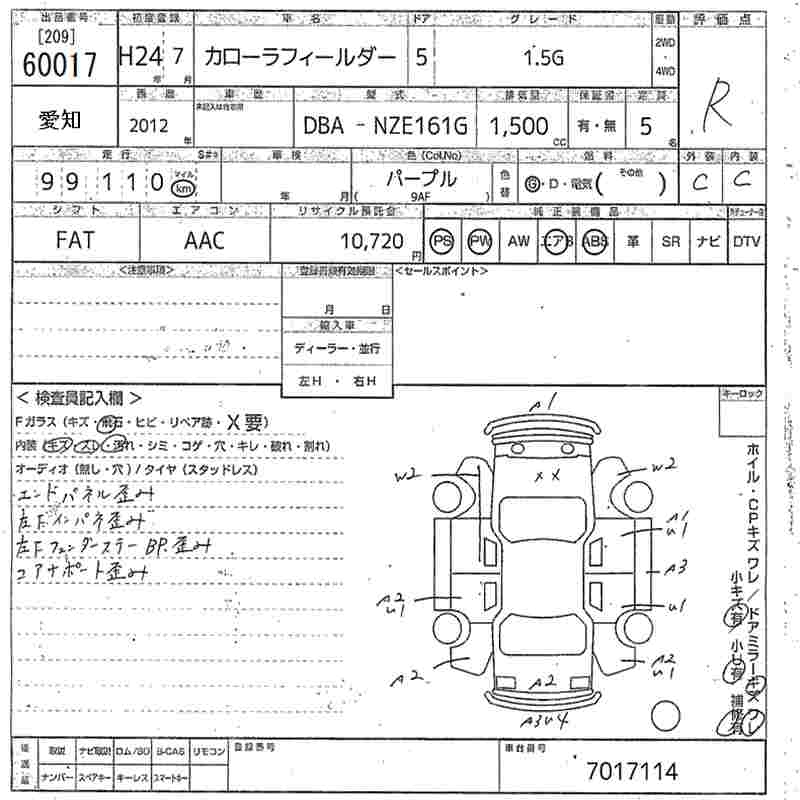 出品番号 初度登録 車名 ドア グレード 駆動 評価点
[209]
60017 H24年 7月 カローラフィールダー 5 1.5G 2WD・4WD R
西暦 車歴 型式 排気量 保証書 定員
愛知 2012年 未記入は自家用 DBA - NZE161G 1,500cc 有・無 5名
走行 S#® 車検 色(Col.No) 燃料 外装 内装
99110 マイル km 年 月 パープル (9AF) 色替 G・D・電気( その他 ) C C
シフト エアコン リサイクル預託金 純正装備品
FAT AAC 10,720円 PS PW AW エアB ABS 革 SR ナビ DTV
<注意事項> 登録書類有効期限 <セールスポイント>
月 日
輸入車
ディーラー・並行
左H ・ 右H
< 検査員記入欄 > キーロック
Fガラス (キズ・飛石・ヒビ・リペア跡・X要)
内装 (キズ・スレ・汚れ・シミ・コゲ・穴・キレ・破れ・割れ)
オーディオ (無し・穴) / タイヤ (スタッドレス)
エンドパネル歪み
左Fインパネ歪み
左Fフェンダーステー BP.歪み
コアサポート歪み
A1
W2 X X W2
A1
U1
A3
A2
U1 U1
A2 A2
U1
A2
A3U4
ホイル・CPキズ ワレ / ドアミラーキズ ワレ
小キズ有 / 小U有 補修有
後送品 取説 ナビ取説 ロム/SD B-CAS リモコン 登録番号 車台番号
ナンバー スペアキー キーレス スマートキー 7017114